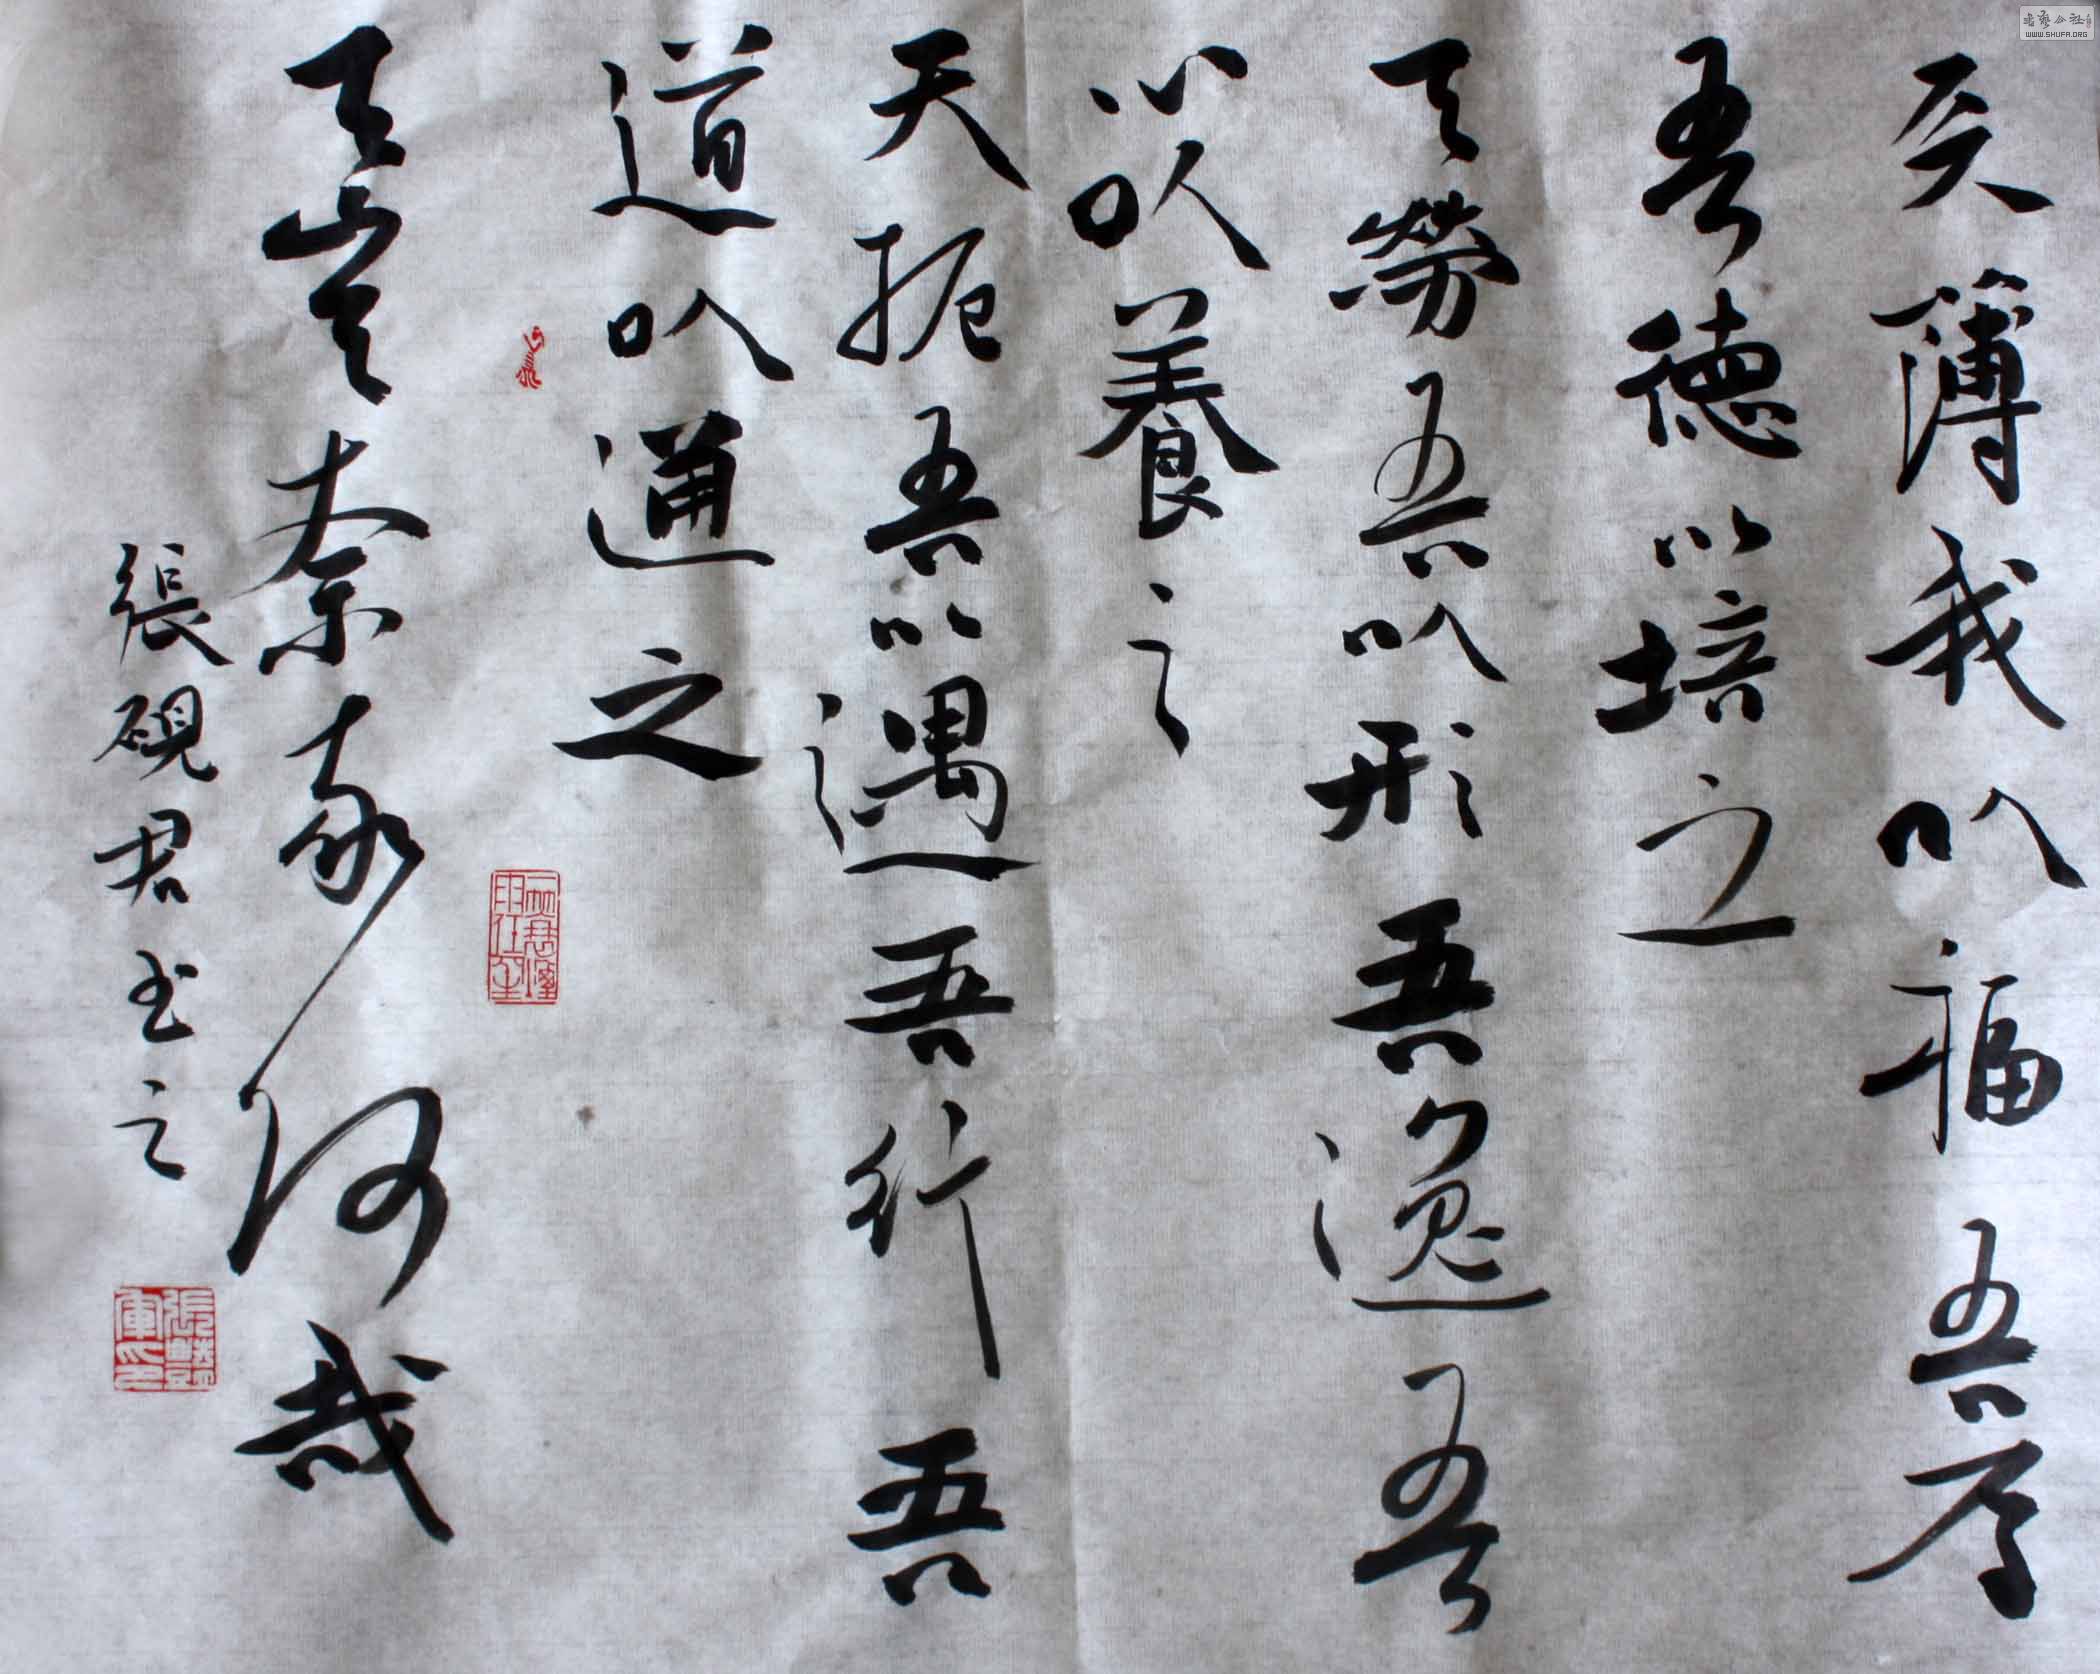 天薄我以福吾厚
吾德以培之
天勞吾以形吾逸吾
心以養之
天扼吾以遇吾行吾
道以通之
天豈奈我何哉
張硯君书之
書藝公社
WWW.SHUFA.ORG